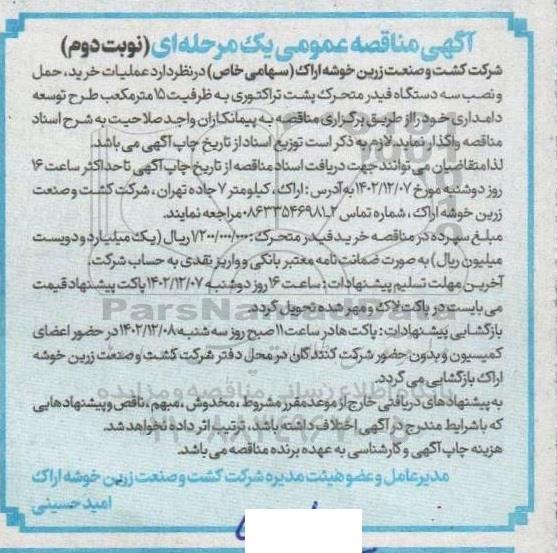 آگهی مناقصه عمومی یک مرحله‌ای (نوبت دوم)
شرکت کشت و صنعت زرین خوشه اراک (سهامی خاص) در نظر دارد عملیات خرید، حمل
و نصب سه دستگاه فیدر متحرک پشت تراکتوری به ظرفیت ۱۵ مترمکعب طرح توسعه
دامداری خود را از طریق برگزاری مناقصه به پیمانکاران واجد صلاحیت به شرح اسناد
مناقصه واگذار نماید. لازم به ذکر است توزیع اسناد از تاریخ چاپ آگهی می باشد.
لذا متقاضیان می توانند جهت دریافت اسناد مناقصه از تاریخ چاپ آگهی تا حداکثر ساعت ۱۶
روز دوشنبه مورخ ۱۴۰۲/۱۲/۰۷ به آدرس: اراک، کیلومتر ۷ جاده تهران، شرکت کشت و صنعت
زرین خوشه اراک، شماره تماس ۲_۰۸۶۳۳۵۴۶۹۸۱ مراجعه نمایند.
مبلغ سپرده در مناقصه خرید فیدر متحرک: ۱/۲۰۰/۰۰۰/۰۰۰ ریال (یک میلیارد و دویست
میلیون ریال) به صورت ضمانت نامه معتبر بانکی و واریز نقدی به حساب شرکت.
آخرین مهلت تسلیم پیشنهادات: ساعت ۱۶ روز دوشنبه ۱۴۰۲/۱۲/۰۷ پاکت پیشنهاد قیمت
می بایست در پاکت لاک و مهر شده تحویل گردد.
بازگشایی پیشنهادات: پاکت ها در ساعت ۱۱ صبح روز سه شنبه ۱۴۰۲/۱۲/۰۸ در حضور اعضای
کمیسیون و بدون حضور شرکت کنندگان در محل دفتر شرکت کشت و صنعت زرین خوشه
اراک بازگشایی می گردد.
به پیشنهادهای دریافتی خارج از موعد مقرر مشروط، مخدوش، مبهم، ناقص و پیشنهادهایی
که با شرایط مندرج در آگهی اختلاف داشته باشد، ترتیب اثر داده نخواهد شد.
هزینه چاپ آگهی و کارشناسی به عهده برنده مناقصه می باشد.
مدیرعامل و عضو هیئت مدیره شرکت کشت و صنعت زرین خوشه اراک
امید حسینی
ParsNamadData